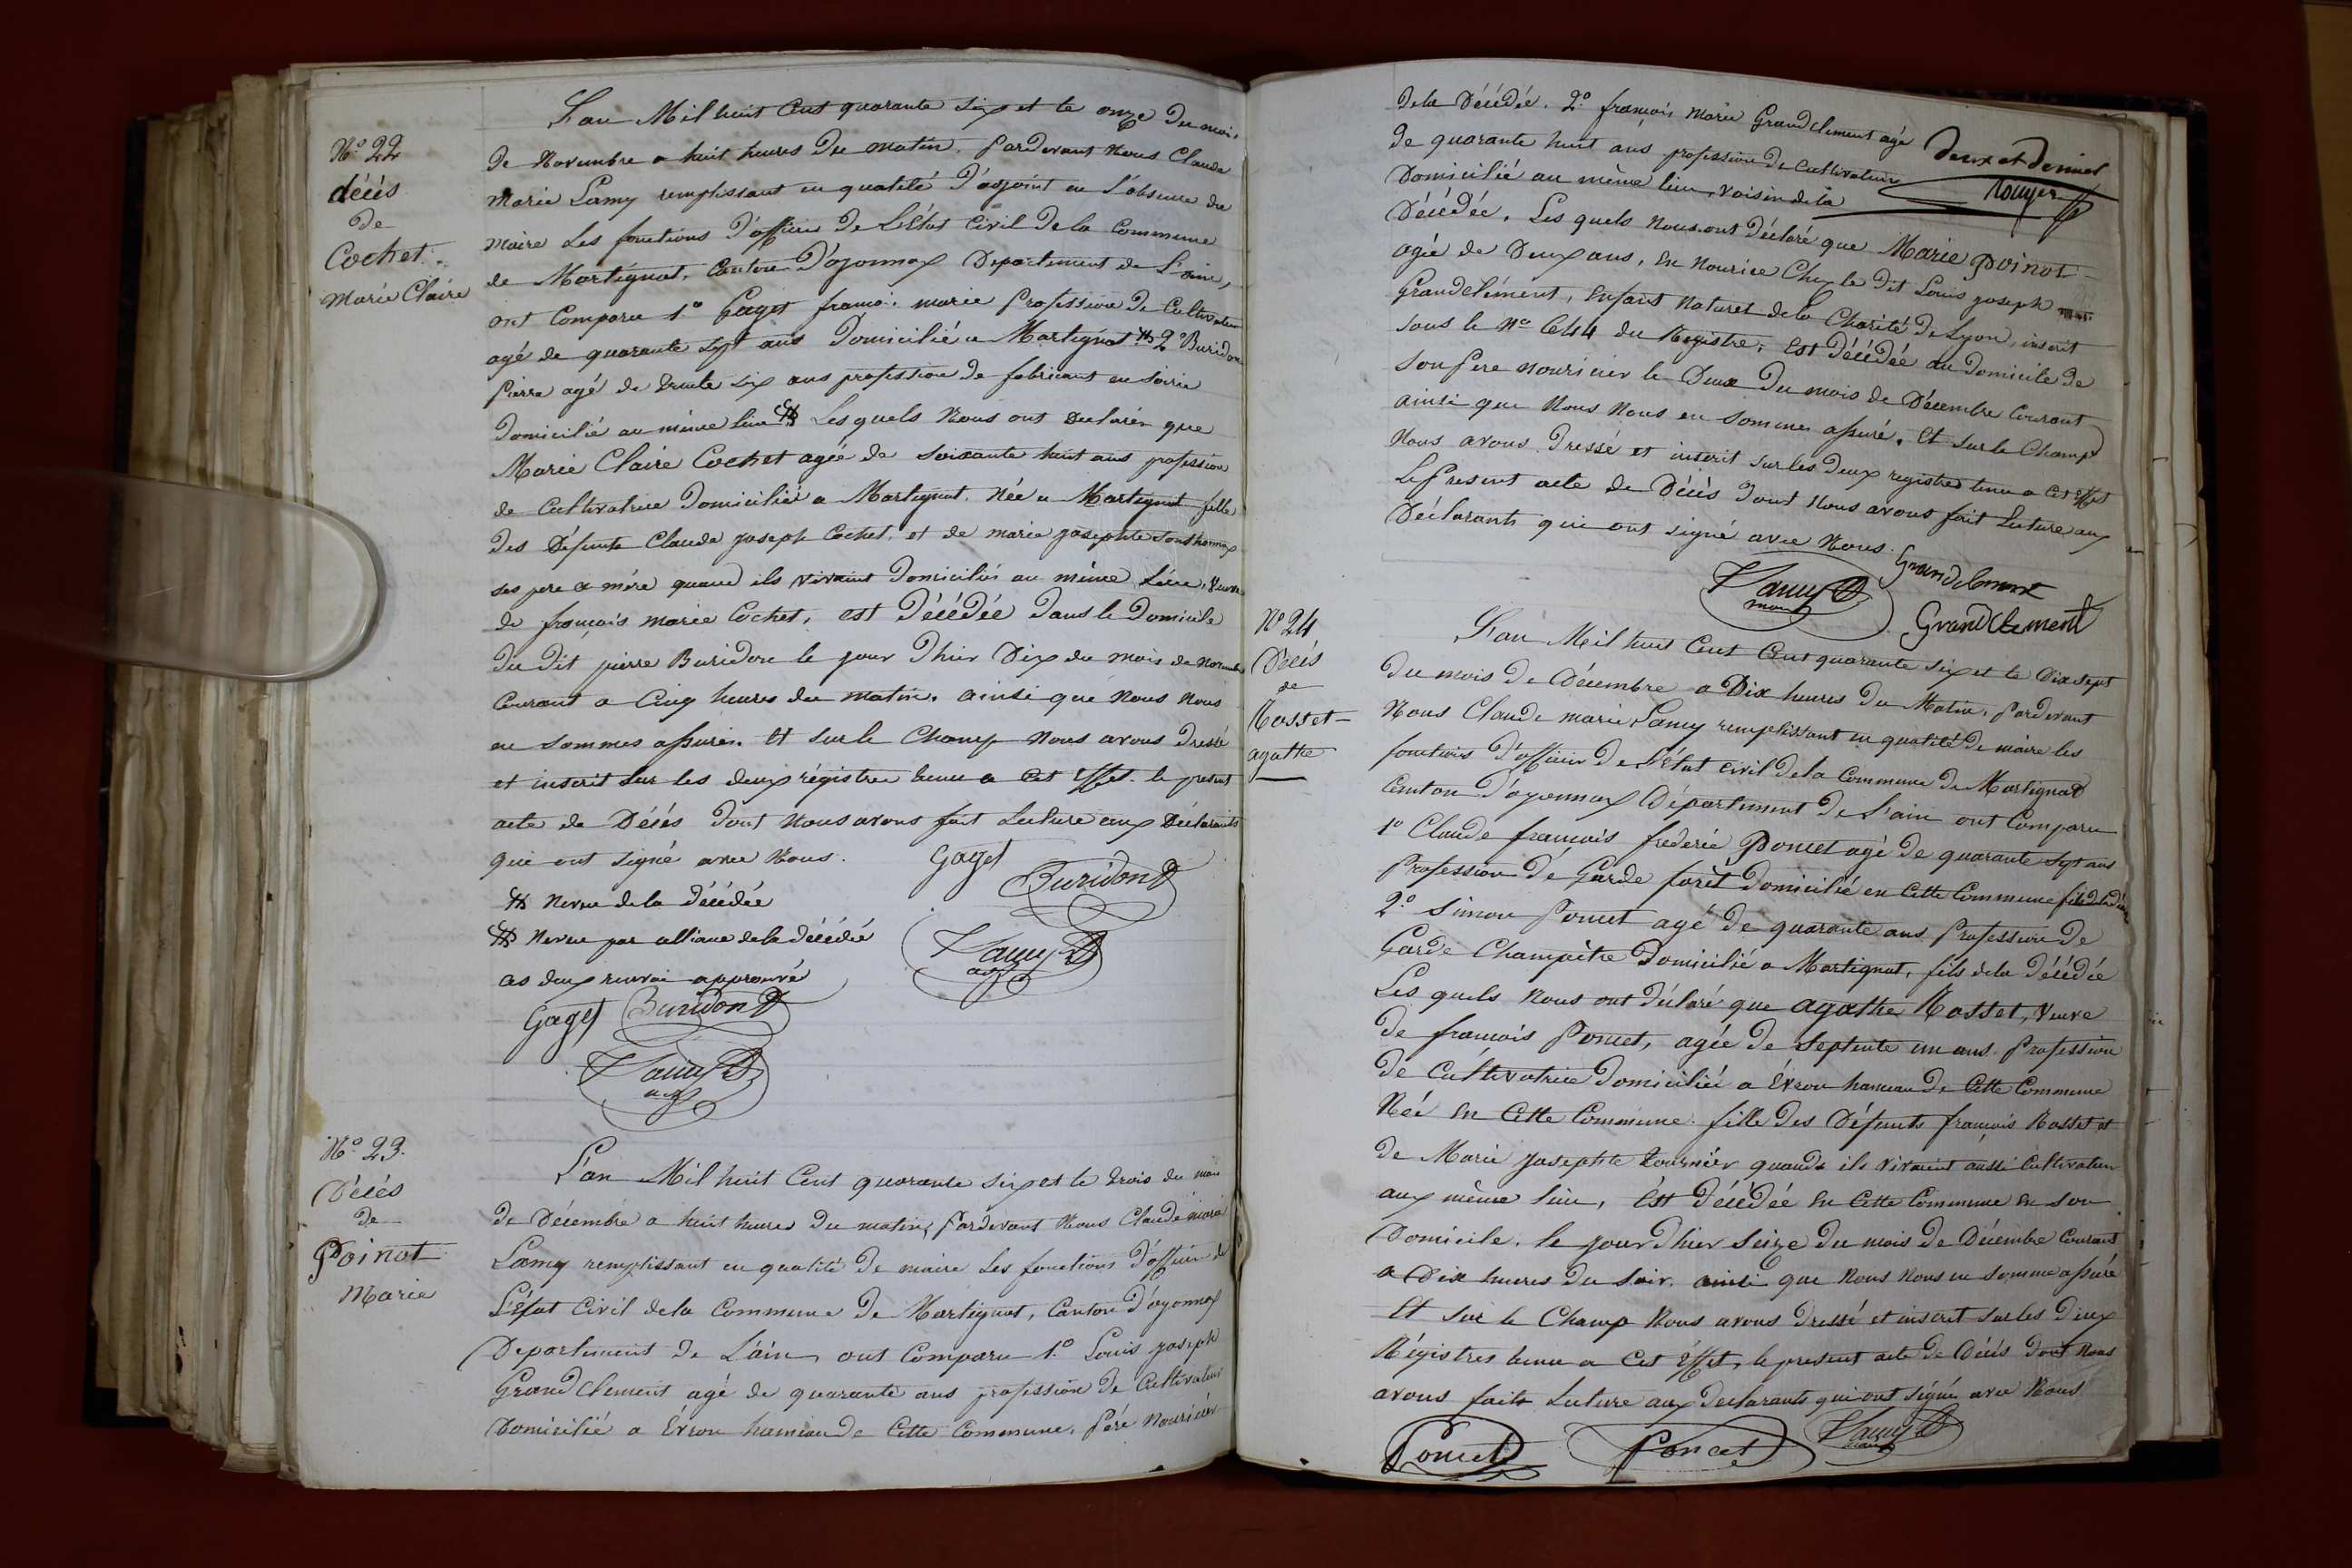 N.º 22
décès
de
Cochet.
Marie Claire
L'an Mil huit Cent quarante six et le onze du mois
de Novembre a huit heures du matin. Pardevant Nous Claude
Marie Lamy remplissant en qualité d'adjoint en l'absence du
Maire Les fonctions d'officier de L'État Civil de la Commune
de Martignat. Canton d'oyonnax Departement de L'ain,
ont Comparu 1º Gaget franç. marie Profession de Cultivateur
agé de quarante sept ans Domicilié a Martignat 2º Buridon
Pierre agé de trente six ans profession de fabricant en soirie
Domicilié au même lieu Lesquels Nous ont Declarés que
Marie Claire Cochet agée de soixante huit ans profession
de Cultivatrice Domiciliée a Martignat. Née a Martignat fille
des Défunts Claude joseph Cochet, et de marie josephte
ses pere & mère quand ils vivaint Domiciliés au même Lieu, Veuve
de françois marie Cochet, est Décédée dans le Domicile
du dit pierre Buridon le jour d'hier Dix du mois de novembre
Courant a Cinq heures du matin. ainsi que Nous Nous
en sommes assurés. Et sur le Champ Nous avons Dressé
et inscrit sur les deux régistre tenu a Cet Effet. le present
acte de Décés dont Nous avons fait Lecture aux Déclarants
qui ont signé avec Nous. Gaget
Buridon
Neveu de la Décédée
Neveu par alliance de la décédée
Lamy
adj
ces deux renvoi approuvé
Gaget Buridon
Lamy
adj
N.º 23.
Décés
de
Poinot
Marie
L'an Mil huit Cent quarante six et le trois du mois
de Décembre a huit heures du matin, Pardevant Nous Claude marie
Lamy remplissant en qualité de maire Les fonctions d'officier de
L'État Civil de la Commune de Martignat, Canton d'oyonnax
Departement de L'ain, ont Comparu 1.º Louis joseph
Grandclement agé de quarante ans profession de Cultivateur
Domicilié a Évron hameau de Cette Commune. Pére Nouricier
de la Décédée. 2.º françois Marie Grandclement agé
de quarante huit ans profession de Cultivateur
Domicilié au même lieu, voisin de la
Décédée. Les quels Nous ont déclaré que Marie Poinot
agée de Deux ans, En Nourice Chez le dit Louis joseph
Grandclément, Enfant Naturel de la Charité de Lyon, inscrit
sous le Nº 644 du Registre, Est Décédée au Domicile de
son Pere nouricier le Deux du mois de Décembre Courant
ainsi que Nous Nous en sommes assuré. Et sur le Champ
Nous avons Dressé et inscrit sur les Deux registres tenu a Cet Effet
Le Present acte de Décès dont Nous avons fait Lecture aux
Déclarants qui ont signé avec Nous.
Grandclement
Lamy
maire
Grandclement
Nº 24
Décés
de
Rosset
agathe
L'an Mil huit Cent Cent quarante six et le Dix sept
du mois de Décembre a Dix heures du Matin. Pardevant
Nous Claude marie Lamy remplissant en qualité de maire les
fonctions d'officier de L'État Civil de la Commune de Martignat
Canton d'oyonnax Département de L'ain ont Comparu
1º Claude francois frederic Poncet agé de quarante sept ans
Profession de Garde forêt Domicilié en Cette Commune
2.º Simon Poncet agé de quarante ans Profession de
Garde Champêtre Domicilié a Martignat, fils de la Décédée
Les quels Nous ont déclaré que agathe Rosset, Veuve
de françois Poncet, agée de septente un ans Profession
de Cultivatrice Domiciliée a Évron hameau de Cette Commune
Née En Cette Commune. fille des Défunts françois Rosset et
de Marie josephte Tournier quands ils vivaient aussi Cultivateur
aux même lieu, Est Décédée en Cette Commune en son
Domicile. le jour d'hier Seize du mois de Décembre Courant
a Dix heures du soir. ainsi que Nous Nous en somme assuré
Et sur le Champ Nous avons Dressé et inscrit sur les Deux
Régistres tenu a Cet Effet, le present acte de Décés dont Nous
avons faits Lecture aux Declarants qui ont signés avec Nous
Poncet Poncet Lamy
maire